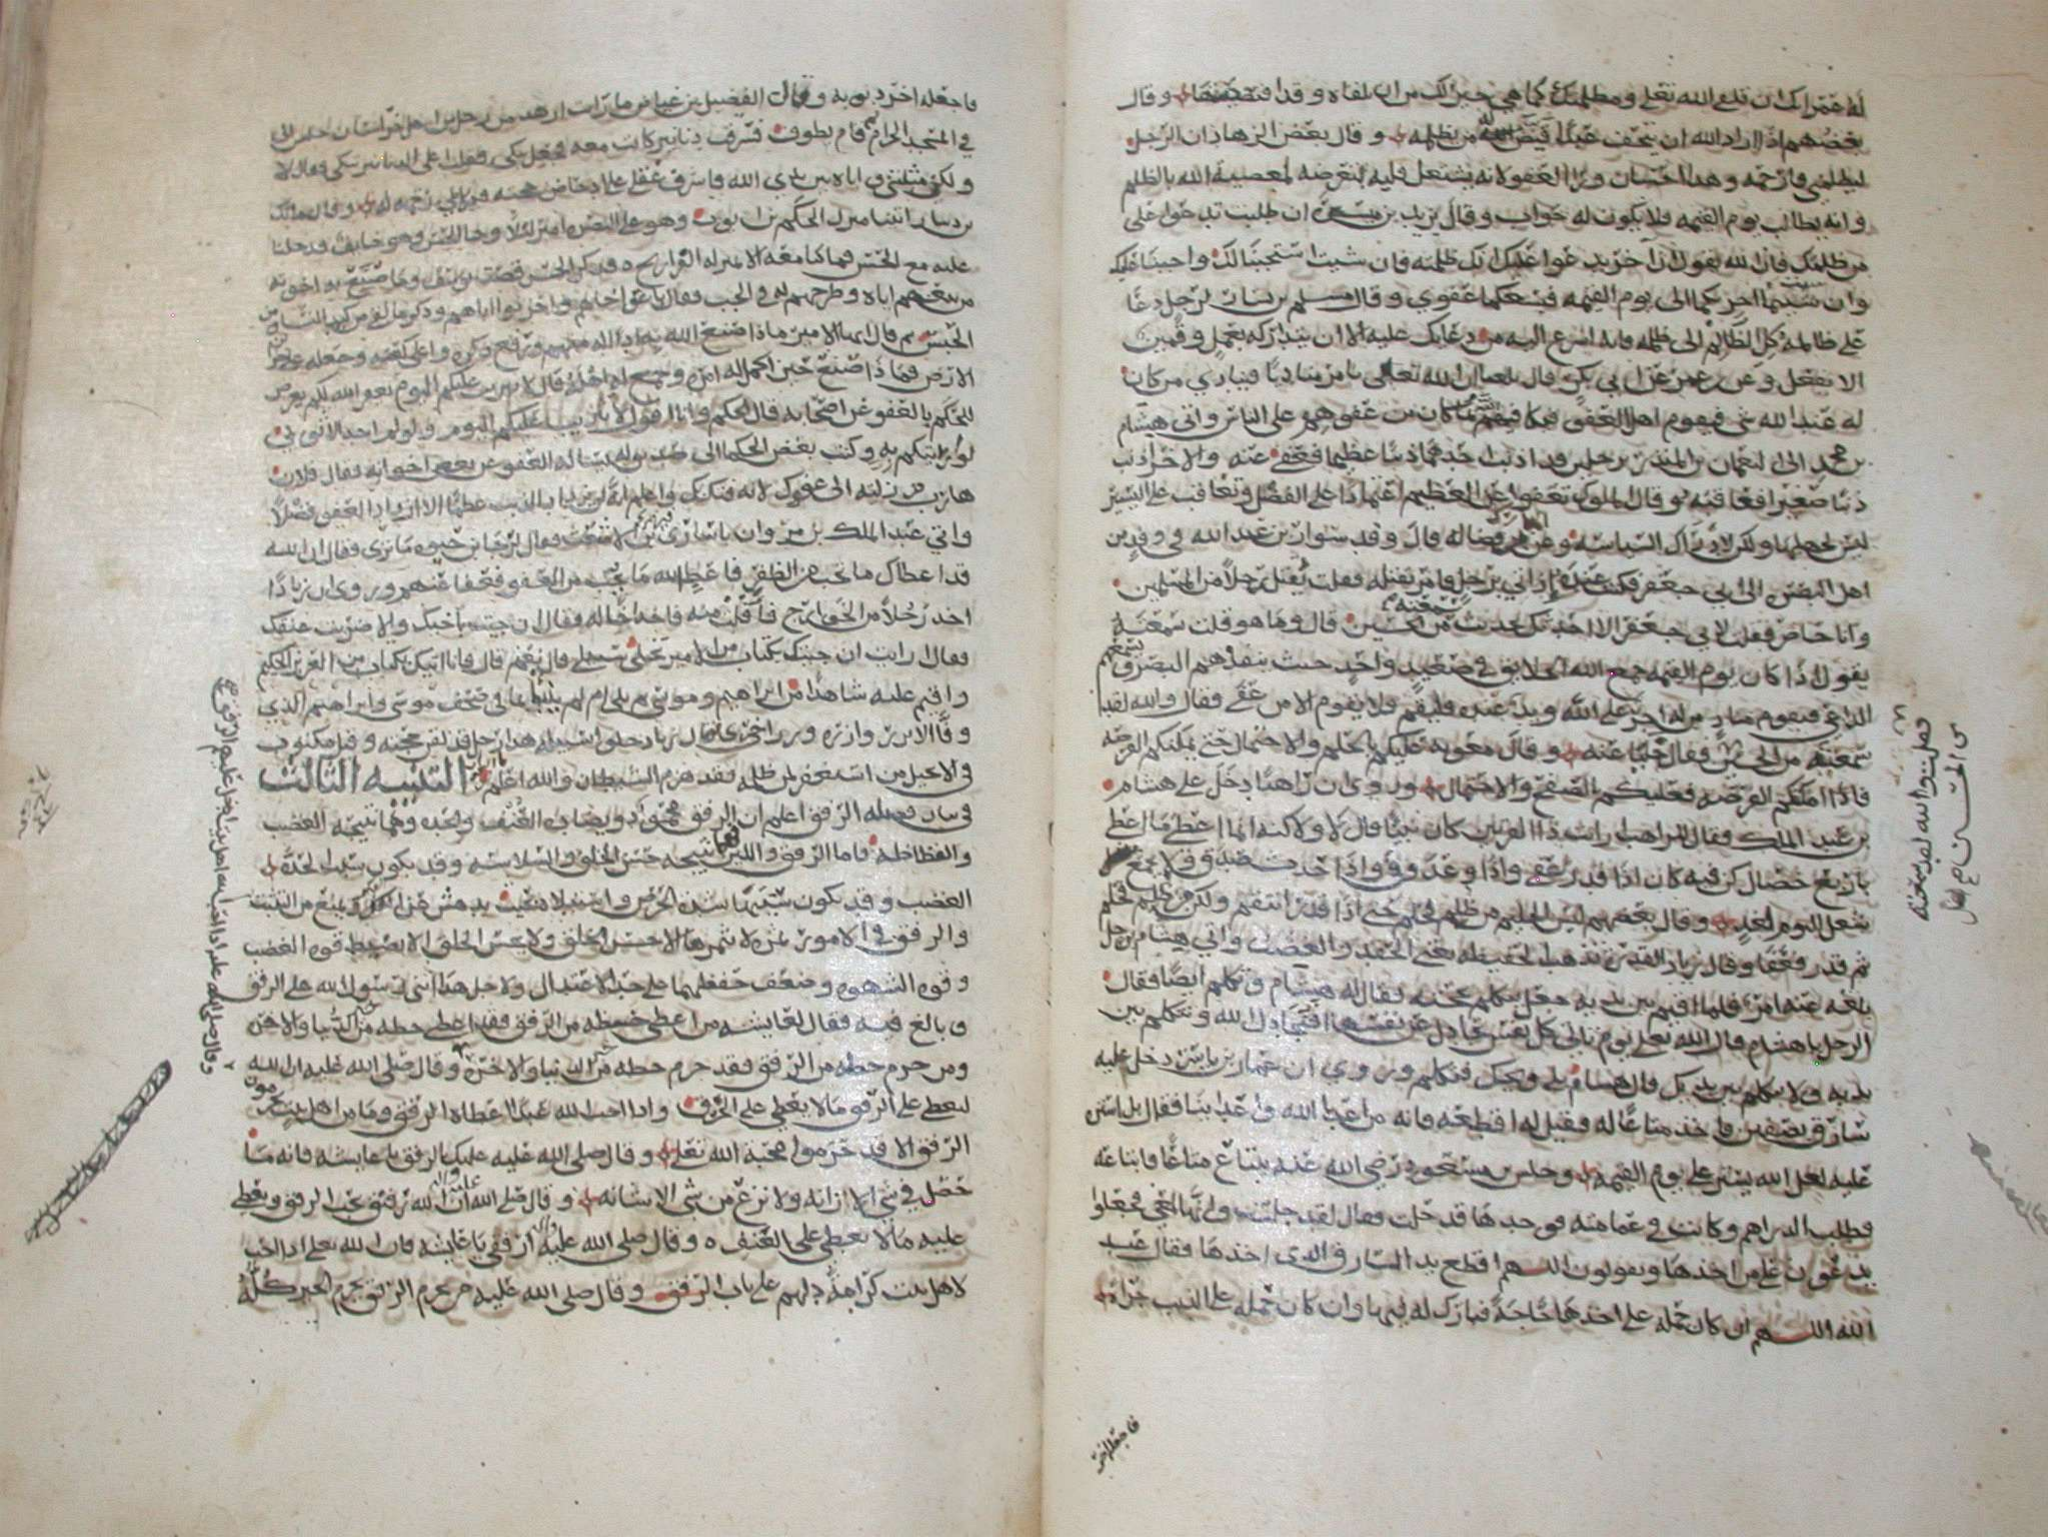 له عمر انك ان تلقى الله تعالى ومظلمتك كما هي خير لك من ان تلقاه وقد اقتصصتها وقال
بعضهم اذا اراد الله ان يتحف عبدا قيض له من يظلمه وقال بعض الزهاد ان الرجل
ليظلمني فارحمه وهذا احسان ورا العفو لانه يشتغل قلبه بتعرضه لمعصية الله بالظلم
وانه يطالب يوم القيمه فلا يكون له جواب وقال يزيد بن ميسره ان ظللت تدعوا على
من ظلمك فان الله يقول ان اخر يدعوا عليك انك ظلمته فان شيت استجبنا لك واجبنا عليك
وان شيت اخرتكما الى يوم القيمه فيسعكما عفوي وقال مسلم بن يسار لرجل دعا
على ظالمه كل الظالم الى ظلمه فانه اسرع اليه من دعايك عليه الا ان يتداركه بعمل وقمن
الا يفعل وعن عمر عن ابي بكر قال بلغنا ان الله تعالى يامر مناديا فينادي من كان
له عند الله شي فيقوم اهل العفو فيكافيهم الله بما كان من عفوهم على الناس واتي هشام
بن محمد الى النعمان بن المنذر برجلين قد اذنب احدهما ذنبا عظيما فعفى عنه والاخر اذنب
ذنبا صغيرا فعاقبه وقال الملوك تعفوا عن العظيم
ليس لجهلها ولكن
اهل البصره الى ابي جعفر فكنت عنده اذ اتي برجل فامر بقتله فقلت يقتل رجلا من المسلمين
وانا حاضر فقلت لابي جعفر الا احدثك بحديث سمعته من الحسن قال وما هو قلت سمعته
يقول اذا كان يوم القيمه جمع الله الخلايق في صعيد واحد حيث ينفذهم البصر و
الداعي فيقوم مناد من له اجر على الله ويد عنده فليقم فلا يقوم الا من عفى فقال والله لقد
سمعته من الحسن فقال خليا عنه وقال معوية عليكم بالحلم والاحتمال حتى يمكنكم الفرصه
فاذا امكنكم الفرصه فعليكم الصفح والاحتمال وروي ان راهبا دخل على هشام
بن عبد الملك فقال للراهب ارايت ذا القرنين كان نبيا قال لا ولكنه انما اعطى ما اعطي
باربع خصال كن فيه كان اذا قدر عفى واذا وعد وفى واذا حدث صدق ولا يجمع
شغل اليوم لغد وقال بعضهم ليس الحليم من ظلم فحلم حتى اذا قدر انتقم ولكن من ظلم فحلم
ثم قدر فعفى وقال زياد القدره تذهب الحفيظه يعني الحقد والغضب واتي هشام برجل
بلغه عنه امر فلما اقيم بين يديه جعل يتكلم بحجته فقال له هشام وتتكلم ايضا فقال
الرجل يا هشام قال الله تعالى يوم تاتي كل نفس تجادل عن نفسها افنجادل الله ونتكلم بين
يديه ولا نتكلم بين يديك قال هشام بلى ويحك فتكلم وروي ان عمار بن ياسر دخل عليه
سارق بصفين فاخذ متاعا له فقيل له اقطعه فانه من اعدا الله واعداينا فقال بل استر
عليه لعل الله يستر علي يوم القيمه وجلس بن مسعود رضي الله عنه يبتاع متاعا فابتاعه
فطلب الدراهم وكانت في عمامته فوجدها قد حلت فقال لقد جلست وانها لمعي فجعلوا
يدعون على من اخذها ويقولون اللهم اقطع يد السارق الذي اخذها فقال عبد
الله اللهم ان كان حمله على اخذها حاجة فبارك له فيها وان كان حمله على الذنب جراة
فاجعله اخر
فاجعله اخر ذنوبه وقال الفضيل بن عياض ما رايت ازهد من رجل من اهل خراسان جلس الي
في المسجد الحرام ثم قام يطوف فسرقت دنانير كانت معه فجعل يبكي فقلت اعلى الدنانير تبكي فقال لا
ولكن مثلتني واياه بين يدي الله فاشرف عقلي على ادحاض حجته فبكاي رحمة له وقال مالك
بن دينار اتينا منزل الحكم بن ايوب وهو على البصره امير ليلا وجا الحسن وهو خايف فدخلنا
عليه مع الحسن فما كنا معه الا بمنزله الفراريج فذكر الحسن قصة يوسف وما صنع به اخوته
من بيعهم اياه وطرحهم له في الجب فقال باعوا اخاهم واحزنوا اباهم وذكر ما لقي من كيد النسا ومن
الحبس ثم قال ايها الامير ماذا صنع الله به اداله منهم ورفع ذكره واعلى كلمته وجعله على خزاين
الارض فماذا صنع حين اكمل له امره وجمع له اهله قال لا تثريب عليكم اليوم يغفر الله لكم يعرض
للحكم بالعفو عن اصحابه قال الحكم وانا اقول لا تثريب عليكم اليوم ولو لم اجد الا ثوبي
لواريتكم به وكتب بعض الحكما الى صديق له يساله العفو عن بعض اخوانه فقال فلان
هارب من زلته الى عفوك لايذ منك بك واعلم انه لن يزداد الذنب عظما الا ازداد العفو فضلا
واتي عبد الملك بن مروان باسارى بن الاشعث فقال لرجا بن حيوه ما ترى فقال ان الله
قد اعطاك ما تحب من الظفر فاعط الله ما يحب من العفو فعفا عنهم وروي ان زيادا
اخذ رجلا من الخوارج فافلت منه فاخذ اخا له فقال ان جيت باخيك والا ضربت عنقك
فقال ارايت ان جيتك بكتاب من الامير تخلي سبيلي قال نعم قال فانا اتيك بكتاب من العزيز الحكيم
واقيم عليه شاهدا من ابراهيم وموسى ثم تلى ام لم ينبا بما في صحف موسى وابراهيم الذي
وفا الا تزر وازره وزر اخرى قال زياد خلوا سبيله هذا رجل قد لقن حجته وقيل مكتوب
في الانجيل من استغفر لمن ظلمه فقد هزم الشيطان والله اعلم التنبيه الثالث
في بيان فضيله الرفق اعلم ان الرفق محمود ويضاده العنف والحده وهما نتيجه الغضب
والفظاظه فاما الرفق واللين فهما نتيجه حسن الخلق والسلاسه وقد يكون سبب الحدة
الغضب وقد يكون سببها شدة الحرص واستيلاه بحيث يدهش عن الفكر ويمنع من التثبت
والرفق في الامور ثمره لا يثمرها الا حسن الخلق ولا يحسن الخلق الا بضبط قوه الغضب
وقوه الشهوه وحفظهما على حد الاعتدال ولاجل هذا اثنى رسول الله على الرفق
وبالغ فيه فقال لعايشه من اعطي حظه من الرفق فقد اعطي حظه من خير الدنيا والاخره
ومن حرم حظه من الرفق فقد حرم حظه من خير الدنيا والاخره وقال صلى الله عليه ان الله
ليعطي على الرفق ما لا يعطي على الخرق واذا احب الله عبدا اعطاه الرفق وما من اهل بيت يحرمون
الرفق الا قد حرموا محبة الله تعالى وقال صلى الله عليه عليك بالرفق يا عايشه فانه ما
حصل في شي الا زانه ولا نزع من شي الا شانه وقال صلى الله عليه واله ان الله رفيق يحب الرفق ويعطي
عليه ما لا يعطي على العنف وقال صلى الله عليه واله ارفقي يا عايشه فان الله تعالى اذا احب
لاهل بيت كرامة دلهم على باب الرفق وقال صلى الله عليه من يحرم الرفق يحرم الخير كله